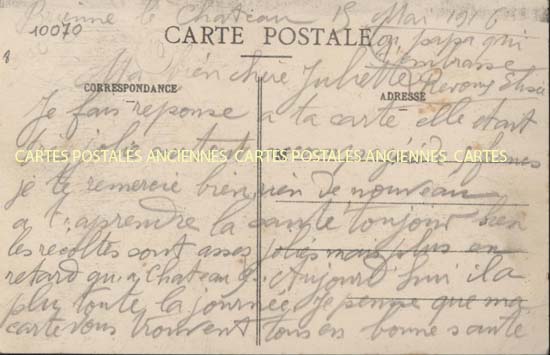 Brienne le Chateau 15 Mai 1916
10070
CARTE POSTALE
ton papa qui
t'embrasse
Ma bien chere Juliette
CORRESPONDANCE
ADRESSE
Je fais reponse a ta carte elle etant
bien jolie
CARTES POSTALES ANCIENNES CARTES POSTALES ANCIENNES CARTES
je te remercie bien rien de nouveau
a t'aprendre la santé toujour bien
les recoltes sont asses jolies mais plus en
retard qu'a Chateau Aujourd hui il a
plu toute la journée Je pense que ma
carte vous trouvent tous en bonne santé